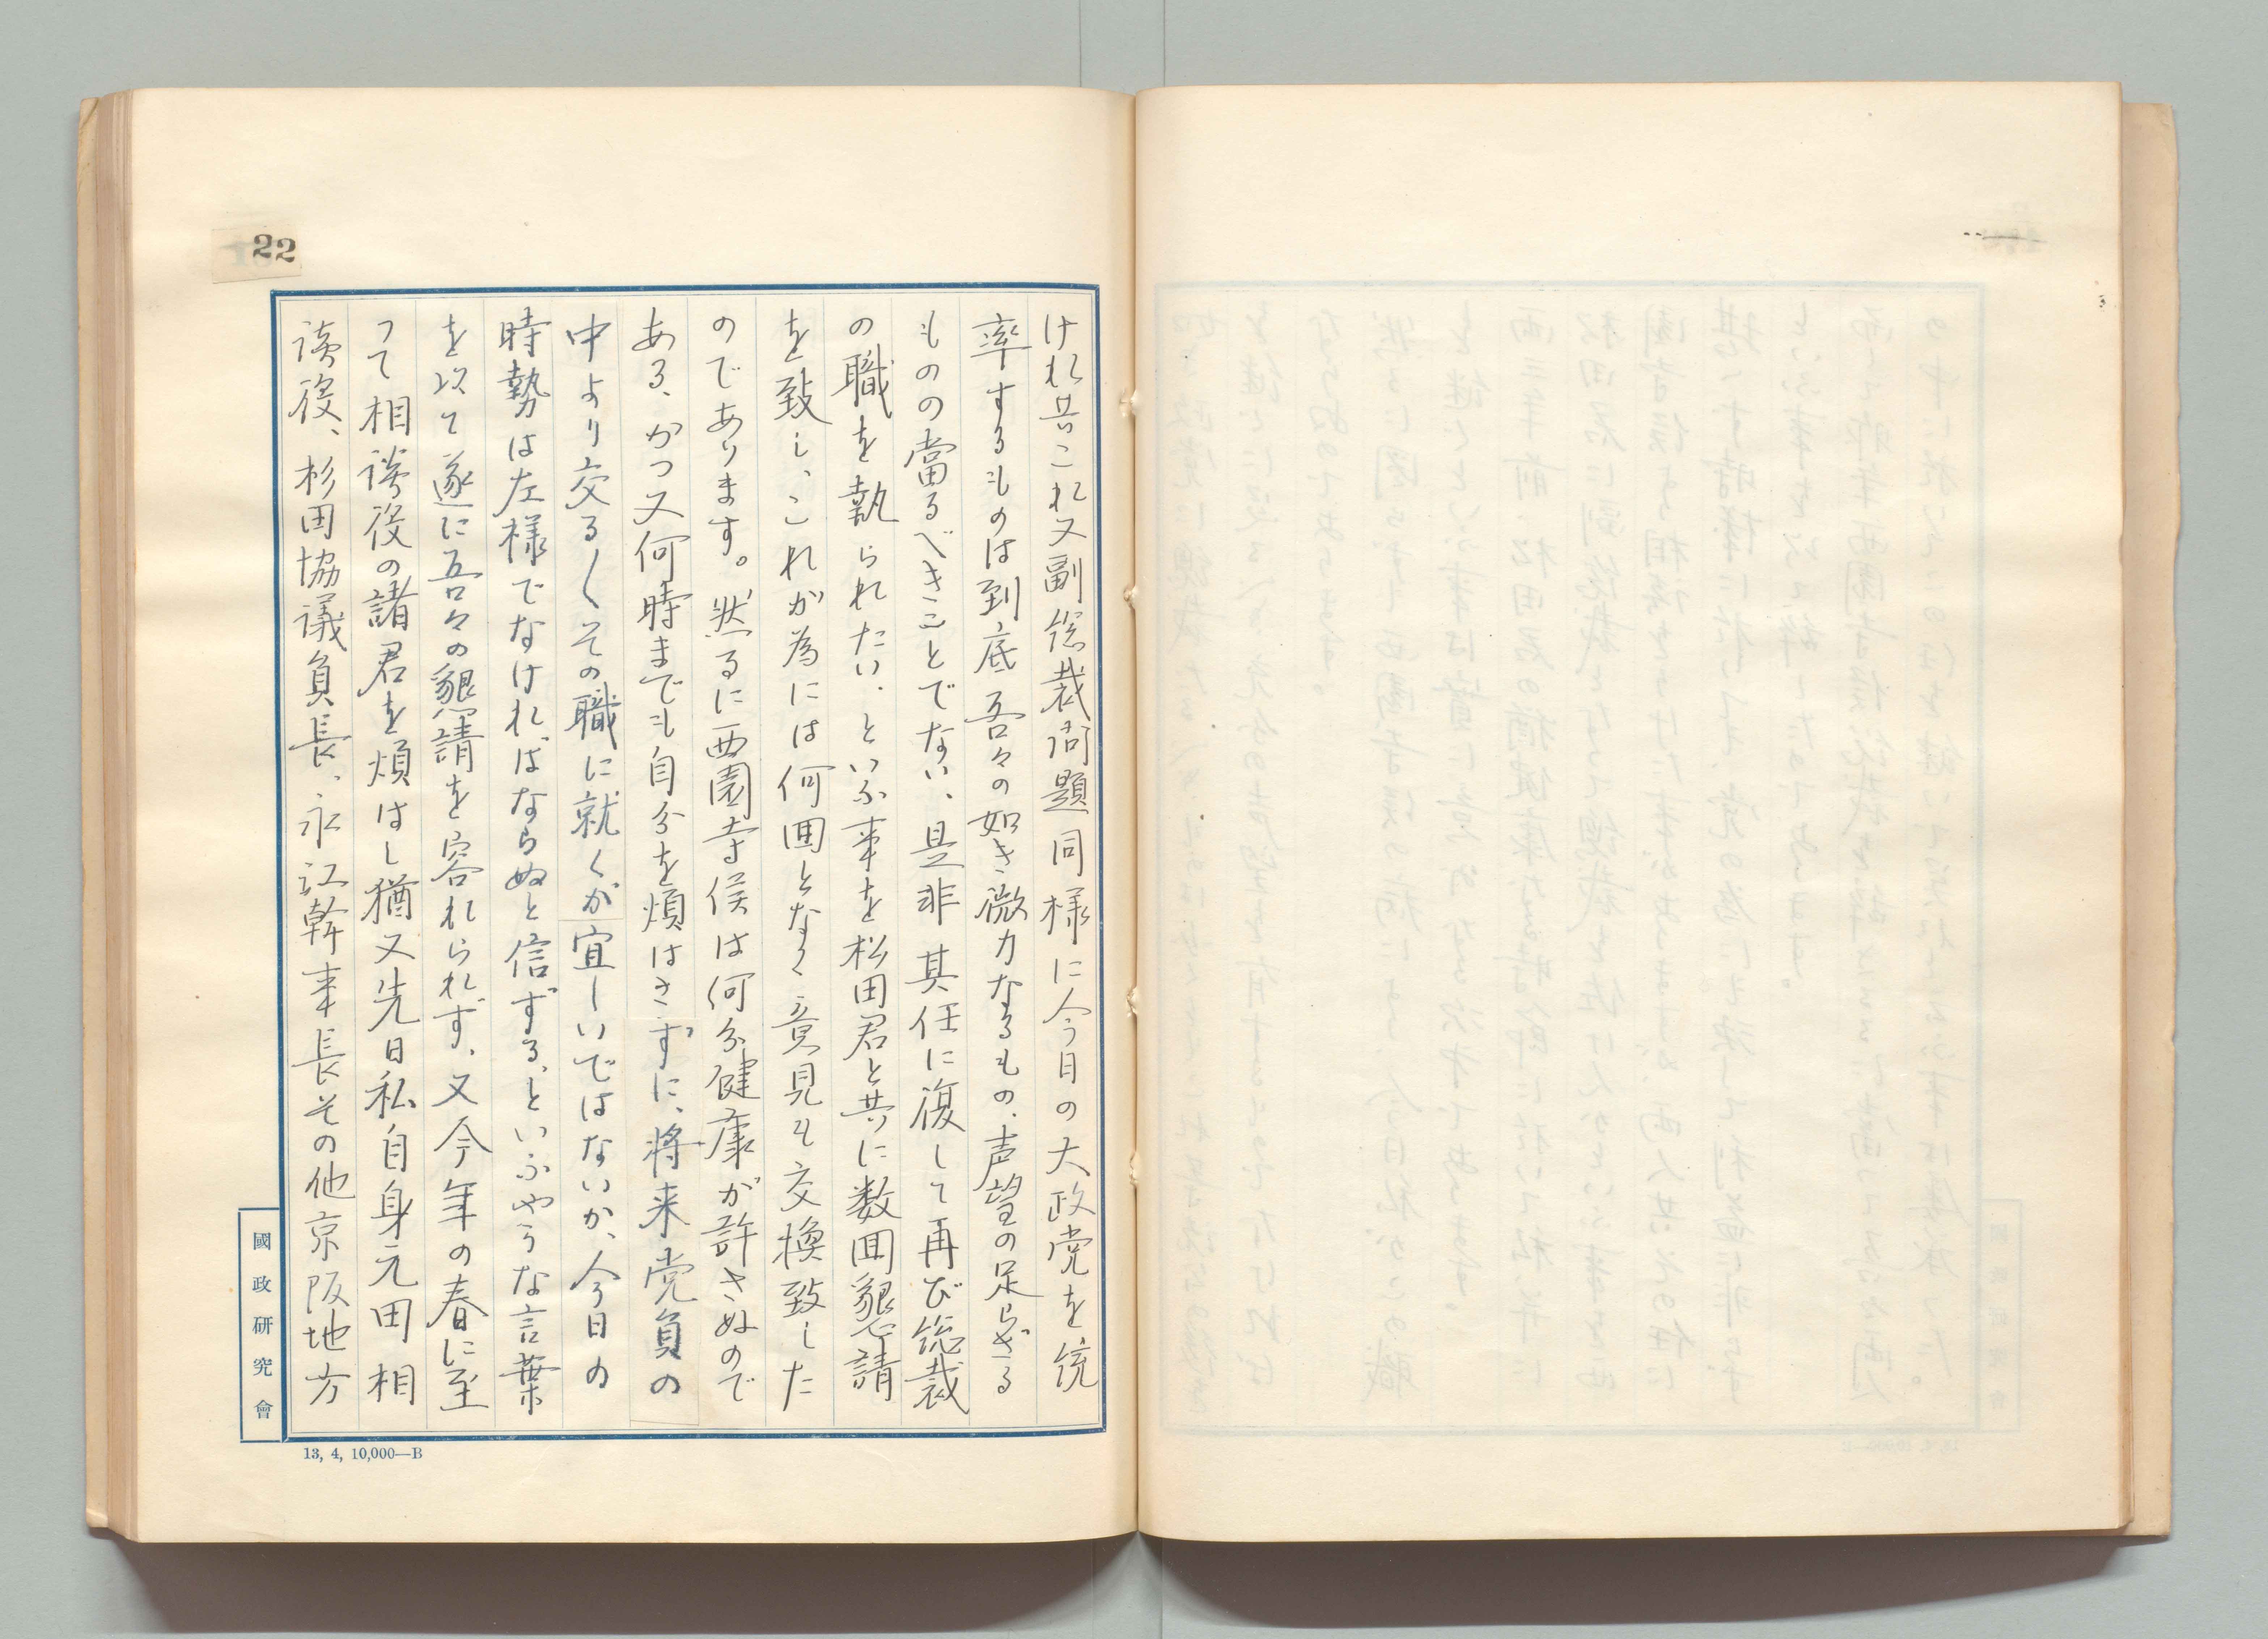 22
けれ共これ又副総裁問題同様に今日の大政党を統
率するものは到底吾々の如き微力なるもの、声望の足らざる
ものの當るべきことでない、是非其任に復して再び総裁
の職を執られたい、といふ事を松田君と共に数囬懇請
を致し、これが為には何囬となく意見も交換致した
のであります。然るに西園寺侯は何分健康が許さぬので
ある、かつ又何時までも自分を煩はさずに、将来党員の
中より交る〱その職に就くが宜しいではないか、今日の
時勢は左様でなければならぬと信ずる、といふやうな言葉
を以て遂に吾々の懇請を容れられず、又今年の春に至
つて相談役の諸君を煩はし猶又先日私自身元田相
談役、杉田協議員長、永江幹事長その他京阪地方
國政研究會
13, 4, 10,000—B